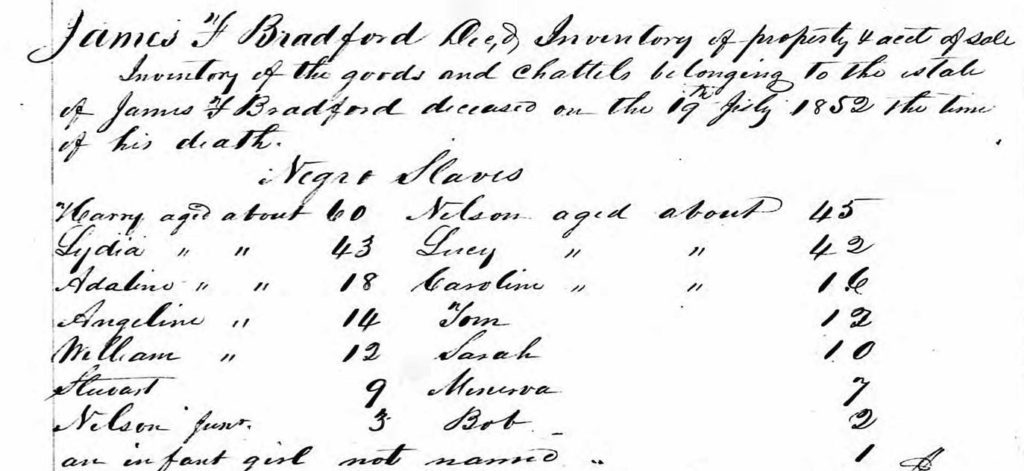 James F Bradford Dec,d, Inventory of property & acct of sale
Inventory of the goods and chattels belonging to the estate
of James F Bradford deceased on the 19th July 1852 the time
of his death.
Negro Slaves
Harry aged about 60 Nelson aged about 45
Lydia " " 43 Lucy " " 42
Adaline " " 18 Caroline " " 16
Angeline " 14 Tom 12
William " 12 Sarah 10
Stewart 9 Minerva 7
Nelson Junr. 3 Bob 2
an infant girl not named " 1